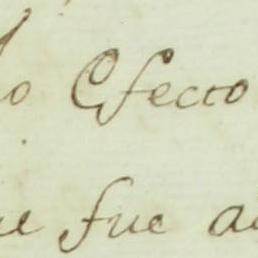 lo Efecto
ue fue a